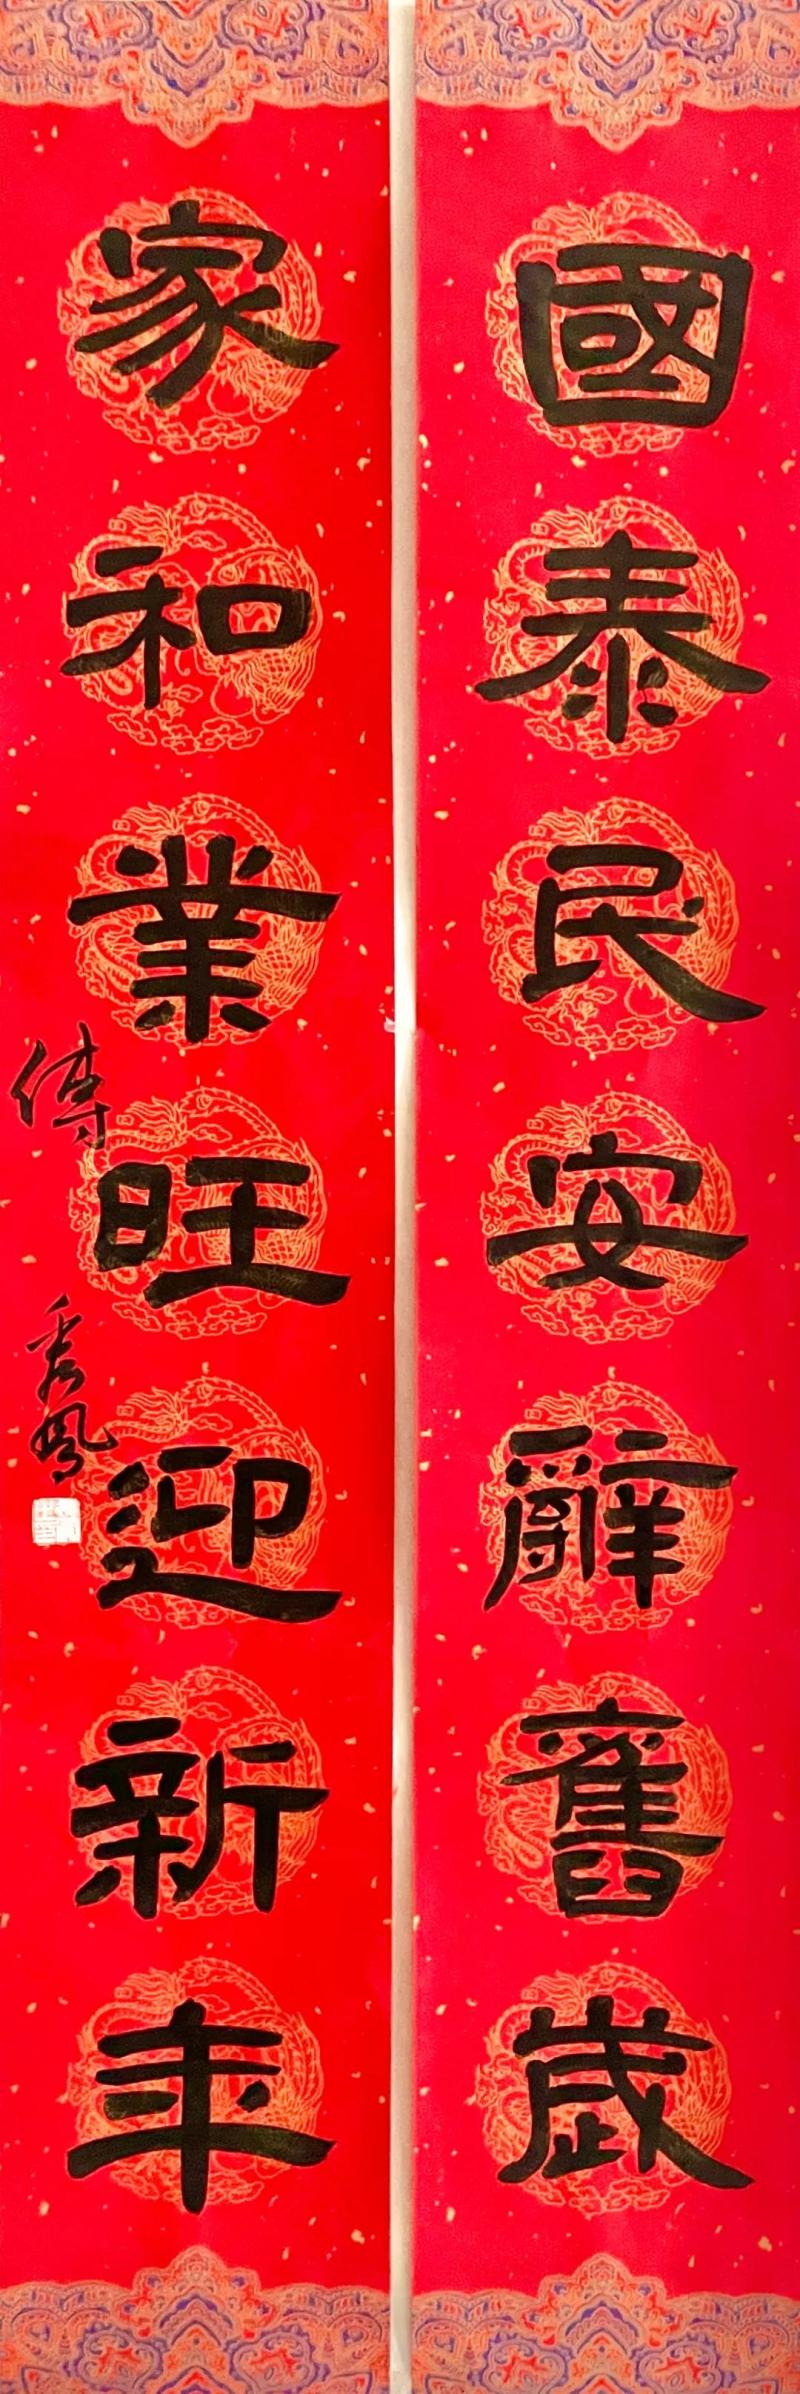 國泰民安辭舊歲
家和業旺迎新年
傅秀鳳